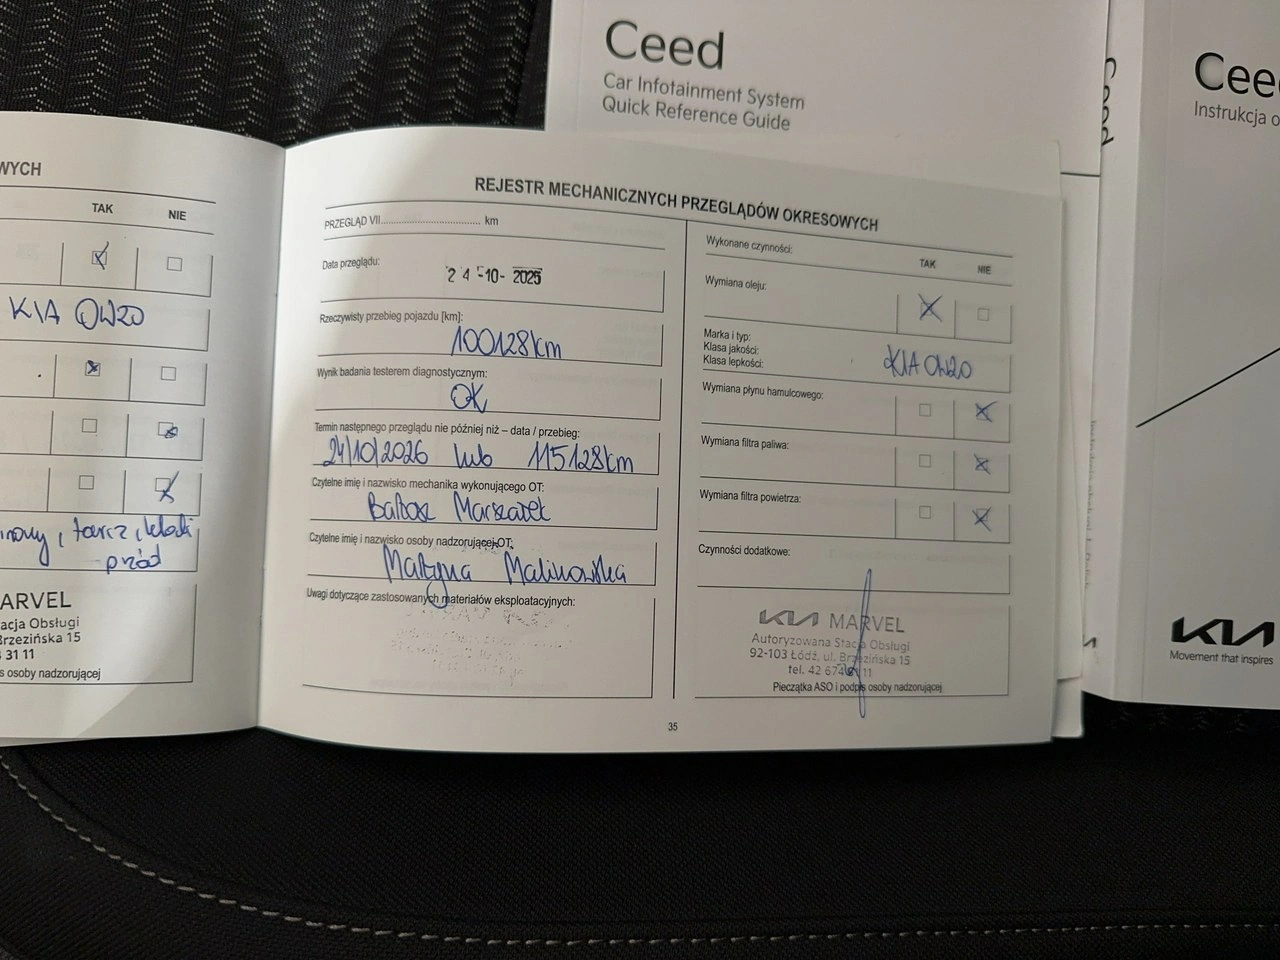 Ceed
Car Infotainment System
Quick Reference Guide
Ceed
Cee
Instrukcja o
KIA
Movement that inspires
WYCH
TAK NIE
KIA 0W20
tarcz, klocki
przód
ARVEL
acja Obsługi
Brzezińska 15
31 11
s osoby nadzorującej
REJESTR MECHANICZNYCH PRZEGLĄDÓW OKRESOWYCH
PRZEGLĄD VII.................................... km
Data przeglądu:
24-10-2025
Rzeczywisty przebieg pojazdu [km]:
100128km
Wynik badania testerem diagnostycznym:
OK
Termin następnego przeglądu nie później niż – data / przebieg:
24/10/2026 lub 115128km
Czytelne imię i nazwisko mechanika wykonującego OT:
Bartosz Marszałek
Czytelne imię i nazwisko osoby nadzorującej OT:
Martyna Malinowska
Uwagi dotyczące zastosowanych materiałów eksploatacyjnych:
Wykonane czynności:
TAK NIE
Wymiana oleju:
Marka i typ:
Klasa jakości:
Klasa lepkości:
KIA 0W20
Wymiana płynu hamulcowego:
Wymiana filtra paliwa:
Wymiana filtra powietrza:
Czynności dodatkowe:
KIA MARVEL
Autoryzowana Stacja Obsługi
92-103 Łódź, ul. Brzezińska 15
tel. 42 674 11
Pieczątka ASO i podpis osoby nadzorującej
35